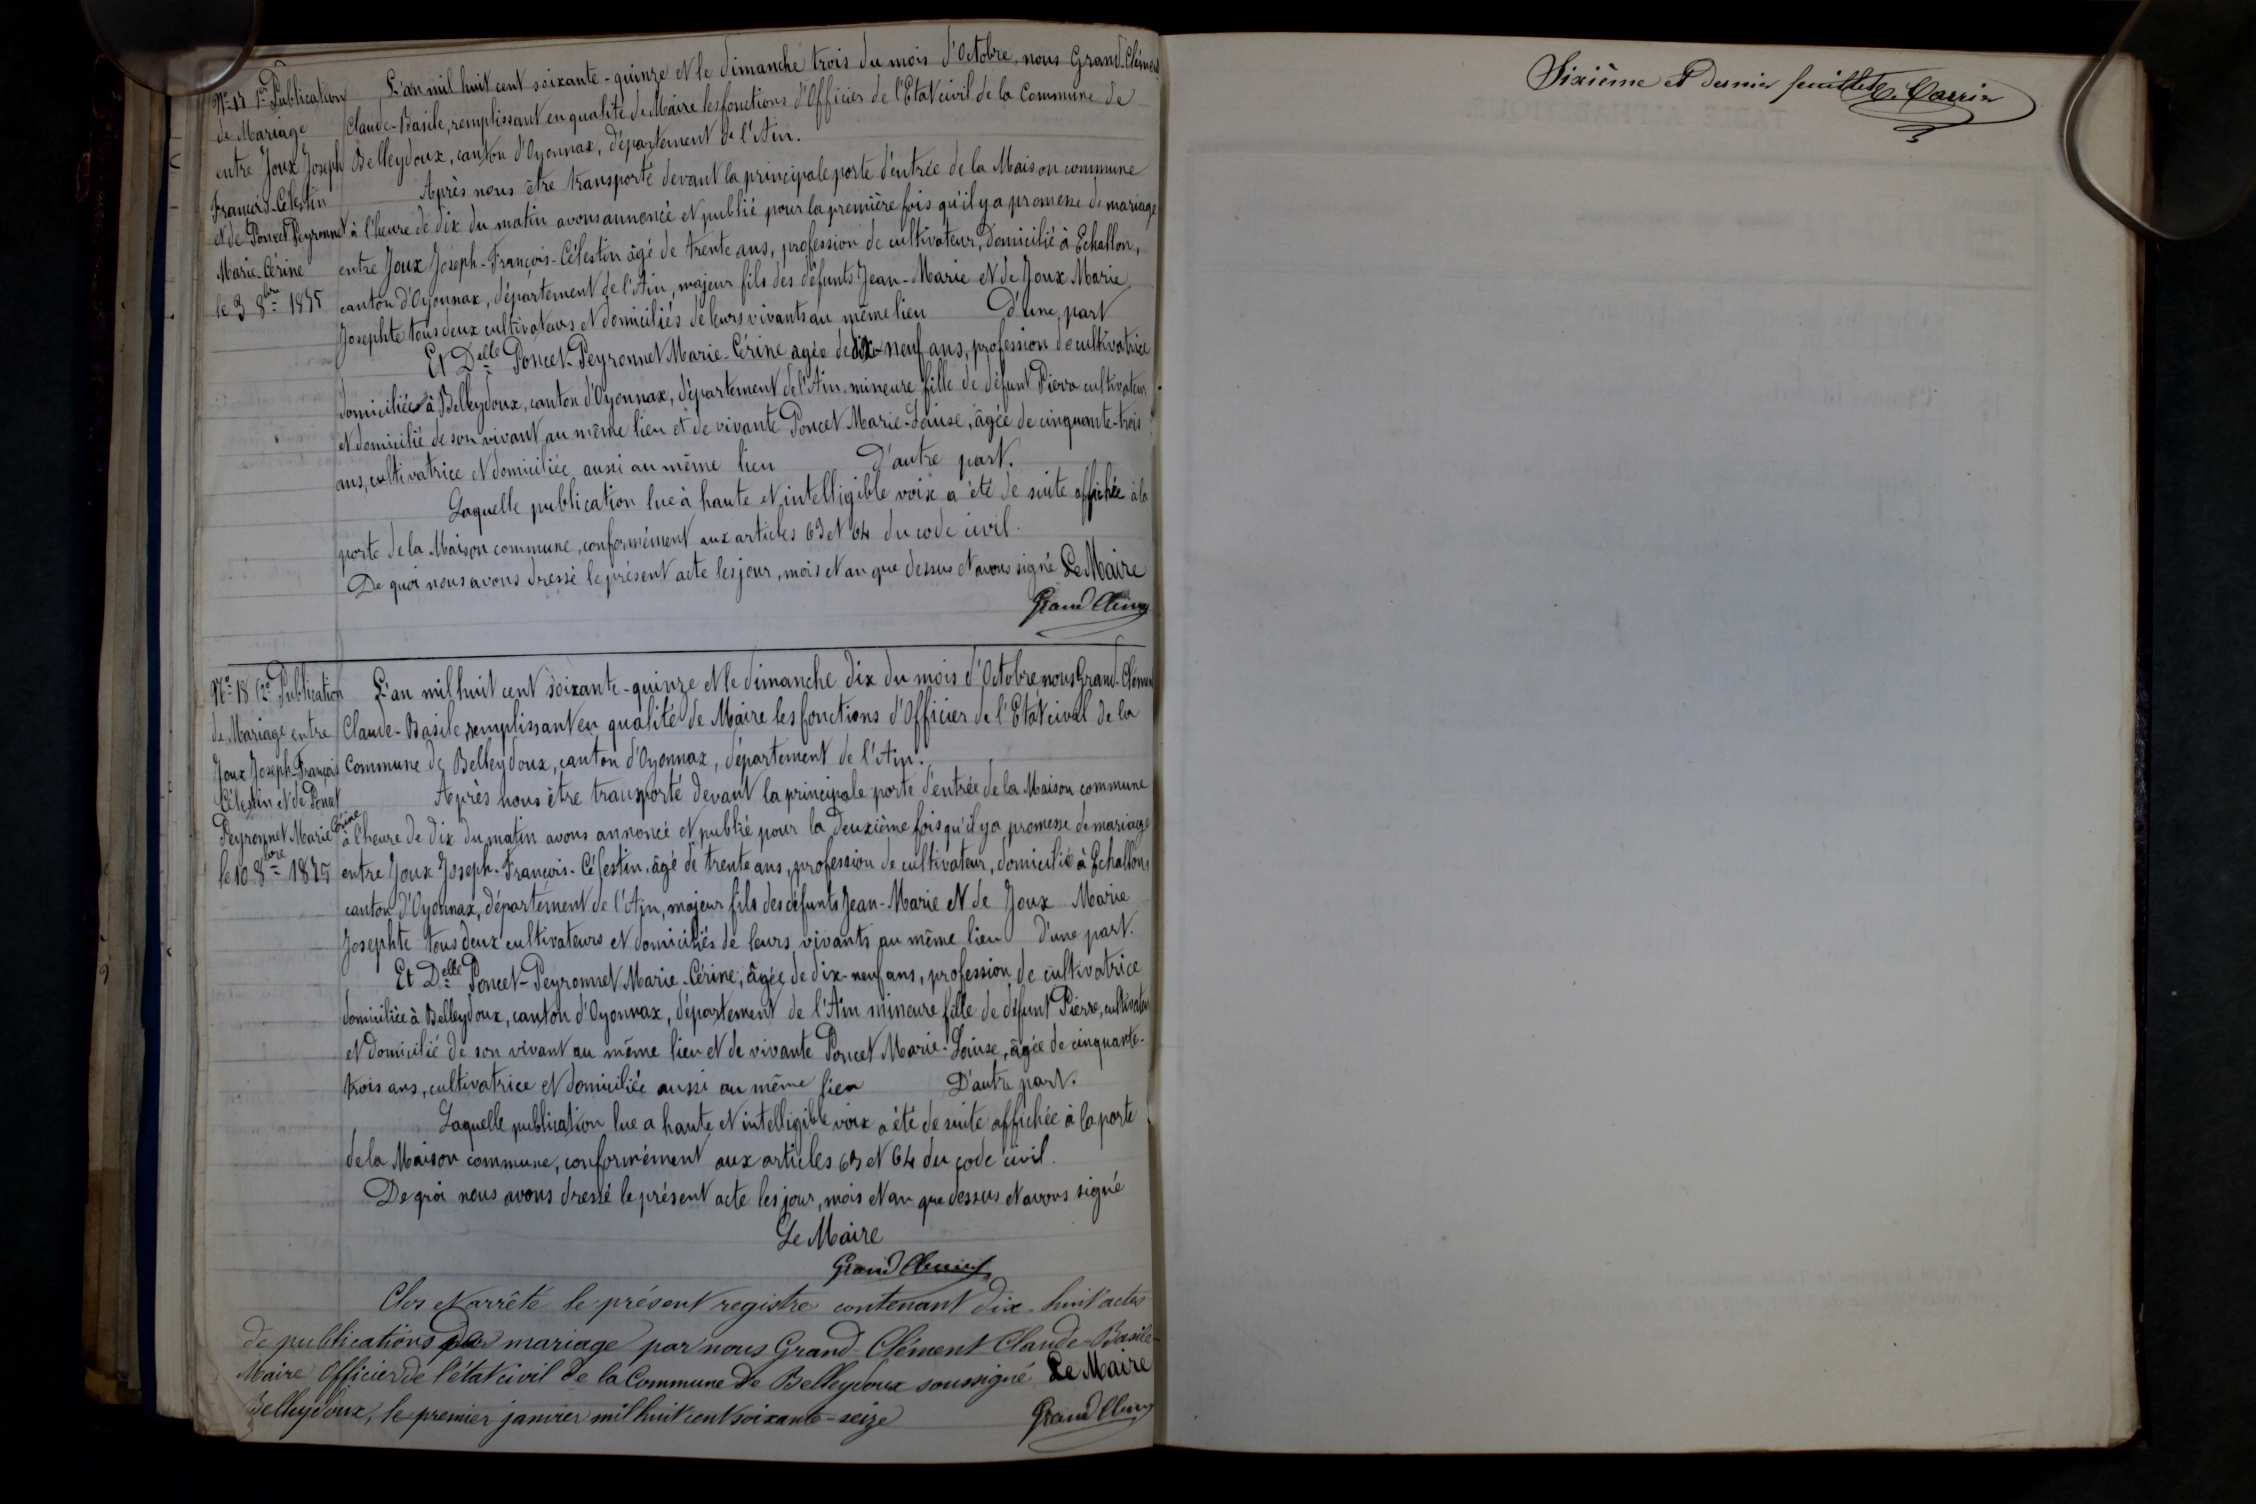 Nº 17 1re Publication
de Mariage
entre Joux Joseph
François-Célestin
et de Poncet Peyronnet
Marie-Cérine
le 3 8bre 1875
L'an mil huit cent soixante-quinze et le dimanche trois du mois d'Octobre, nous Grand-Clément
Claude-Basile, remplissant en qualité de Maire les fonctions d'Officier de l'Etat civil de la Commune de
Belleydoux, canton d'Oyonnax, département de l'Ain.
Après nous être transporté devant la principale porte d'entrée de la Maison commune
à l'heure de dix du matin avons annoncé et publié pour la première fois qu'il y a promesse de mariage
entre Joux Joseph-François-Célestin âgé de trente ans, profession de cultivateur, domicilié à Echallon,
canton d'Oyonnax, département de l'Ain, majeur fils des défunts Jean-Marie et de Joux Marie
Josephte tous deux cultivateurs et domiciliés de leurs vivants au même lieu d'une part
Et Delle Poncet-Peyronnet Marie-Cérine agée de dix-neuf ans, profession de cultivatrice
domiciliée à Belleydoux, canton d'Oyonnax, département de l'Ain, mineure fille de défunt Pierre cultivateur
et domicilié de son vivant au même lieu et de vivante Poncet Marie-Louise, âgée de cinquante-trois
ans, cultivatrice et domiciliée aussi au même lieu D'autre part.
Laquelle publication lue à haute et intelligible voix a été de suite affichée à la
porte de la Maison commune, conformément aux articles 63 et 64 du code civil.
De quoi nous avons dressé le présent acte les jour, mois et an que dessus et avons signé Le Maire
Grand Clément
Nº 18 2e Publication
de Mariage entre
Joux Joseph-François
Célestin et de Poncet
Peyronnet Marie Cérine
le 10 8bre 1875
L'an mil huit cent soixante-quinze et le dimanche dix du mois d'Octobre nous Grand-Clément
Claude-Basile, remplissant en qualité de Maire les fonctions d'Officier de l'Etat civil de la
Commune de Belleydoux, canton d'Oyonnax, département de l'Ain.
Après nous être transporté devant la principale porte d'entrée de la Maison commune
à l'heure de dix du matin avons annoncé et publié pour la deuxième fois qu'il y a promesse de mariage
entre Joux Joseph-François-Célestin, âgé de trente ans, profession de cultivateur, domicilié à Echallon,
canton d'Oyonnax, département de l'Ain, majeur fils des défunts Jean-Marie et de Joux Marie
Josephte tous deux cultivateurs et domiciliés de leurs vivants au même lieu d'une part.
Et Delle Poncet-Peyronnet Marie-Cérine, âgée de dix-neuf ans, profession de cultivatrice
domiciliée à Belleydoux, canton d'Oyonnax, département de l'Ain mineure fille de défunt Pierre, cultivateur
et domicilié de son vivant au même lieu et de vivante Poncet Marie-Louise, âgée de cinquante-
trois ans, cultivatrice et domiciliée aussi au même lieu D'autre part.
Laquelle publication lue a haute et intelligible voix a été de suite affichée à la porte
de la Maison commune, conformément aux articles 63 et 64 du code civil.
De quoi nous avons dressé le présent acte les jour, mois et an que dessus et avons signé
Le Maire
Grand Clément
Clos et arrêté le présent registre contenant dix-huit actes
de publications de mariage par nous Grand-Clément Claude-Basile
Maire Officier de l'état civil de la Commune de Belleydoux soussigné Le Maire
Belleydoux, le premier janvier mil huit cent soixante-seize
Grand Clément
Sixième et dernier feuillet